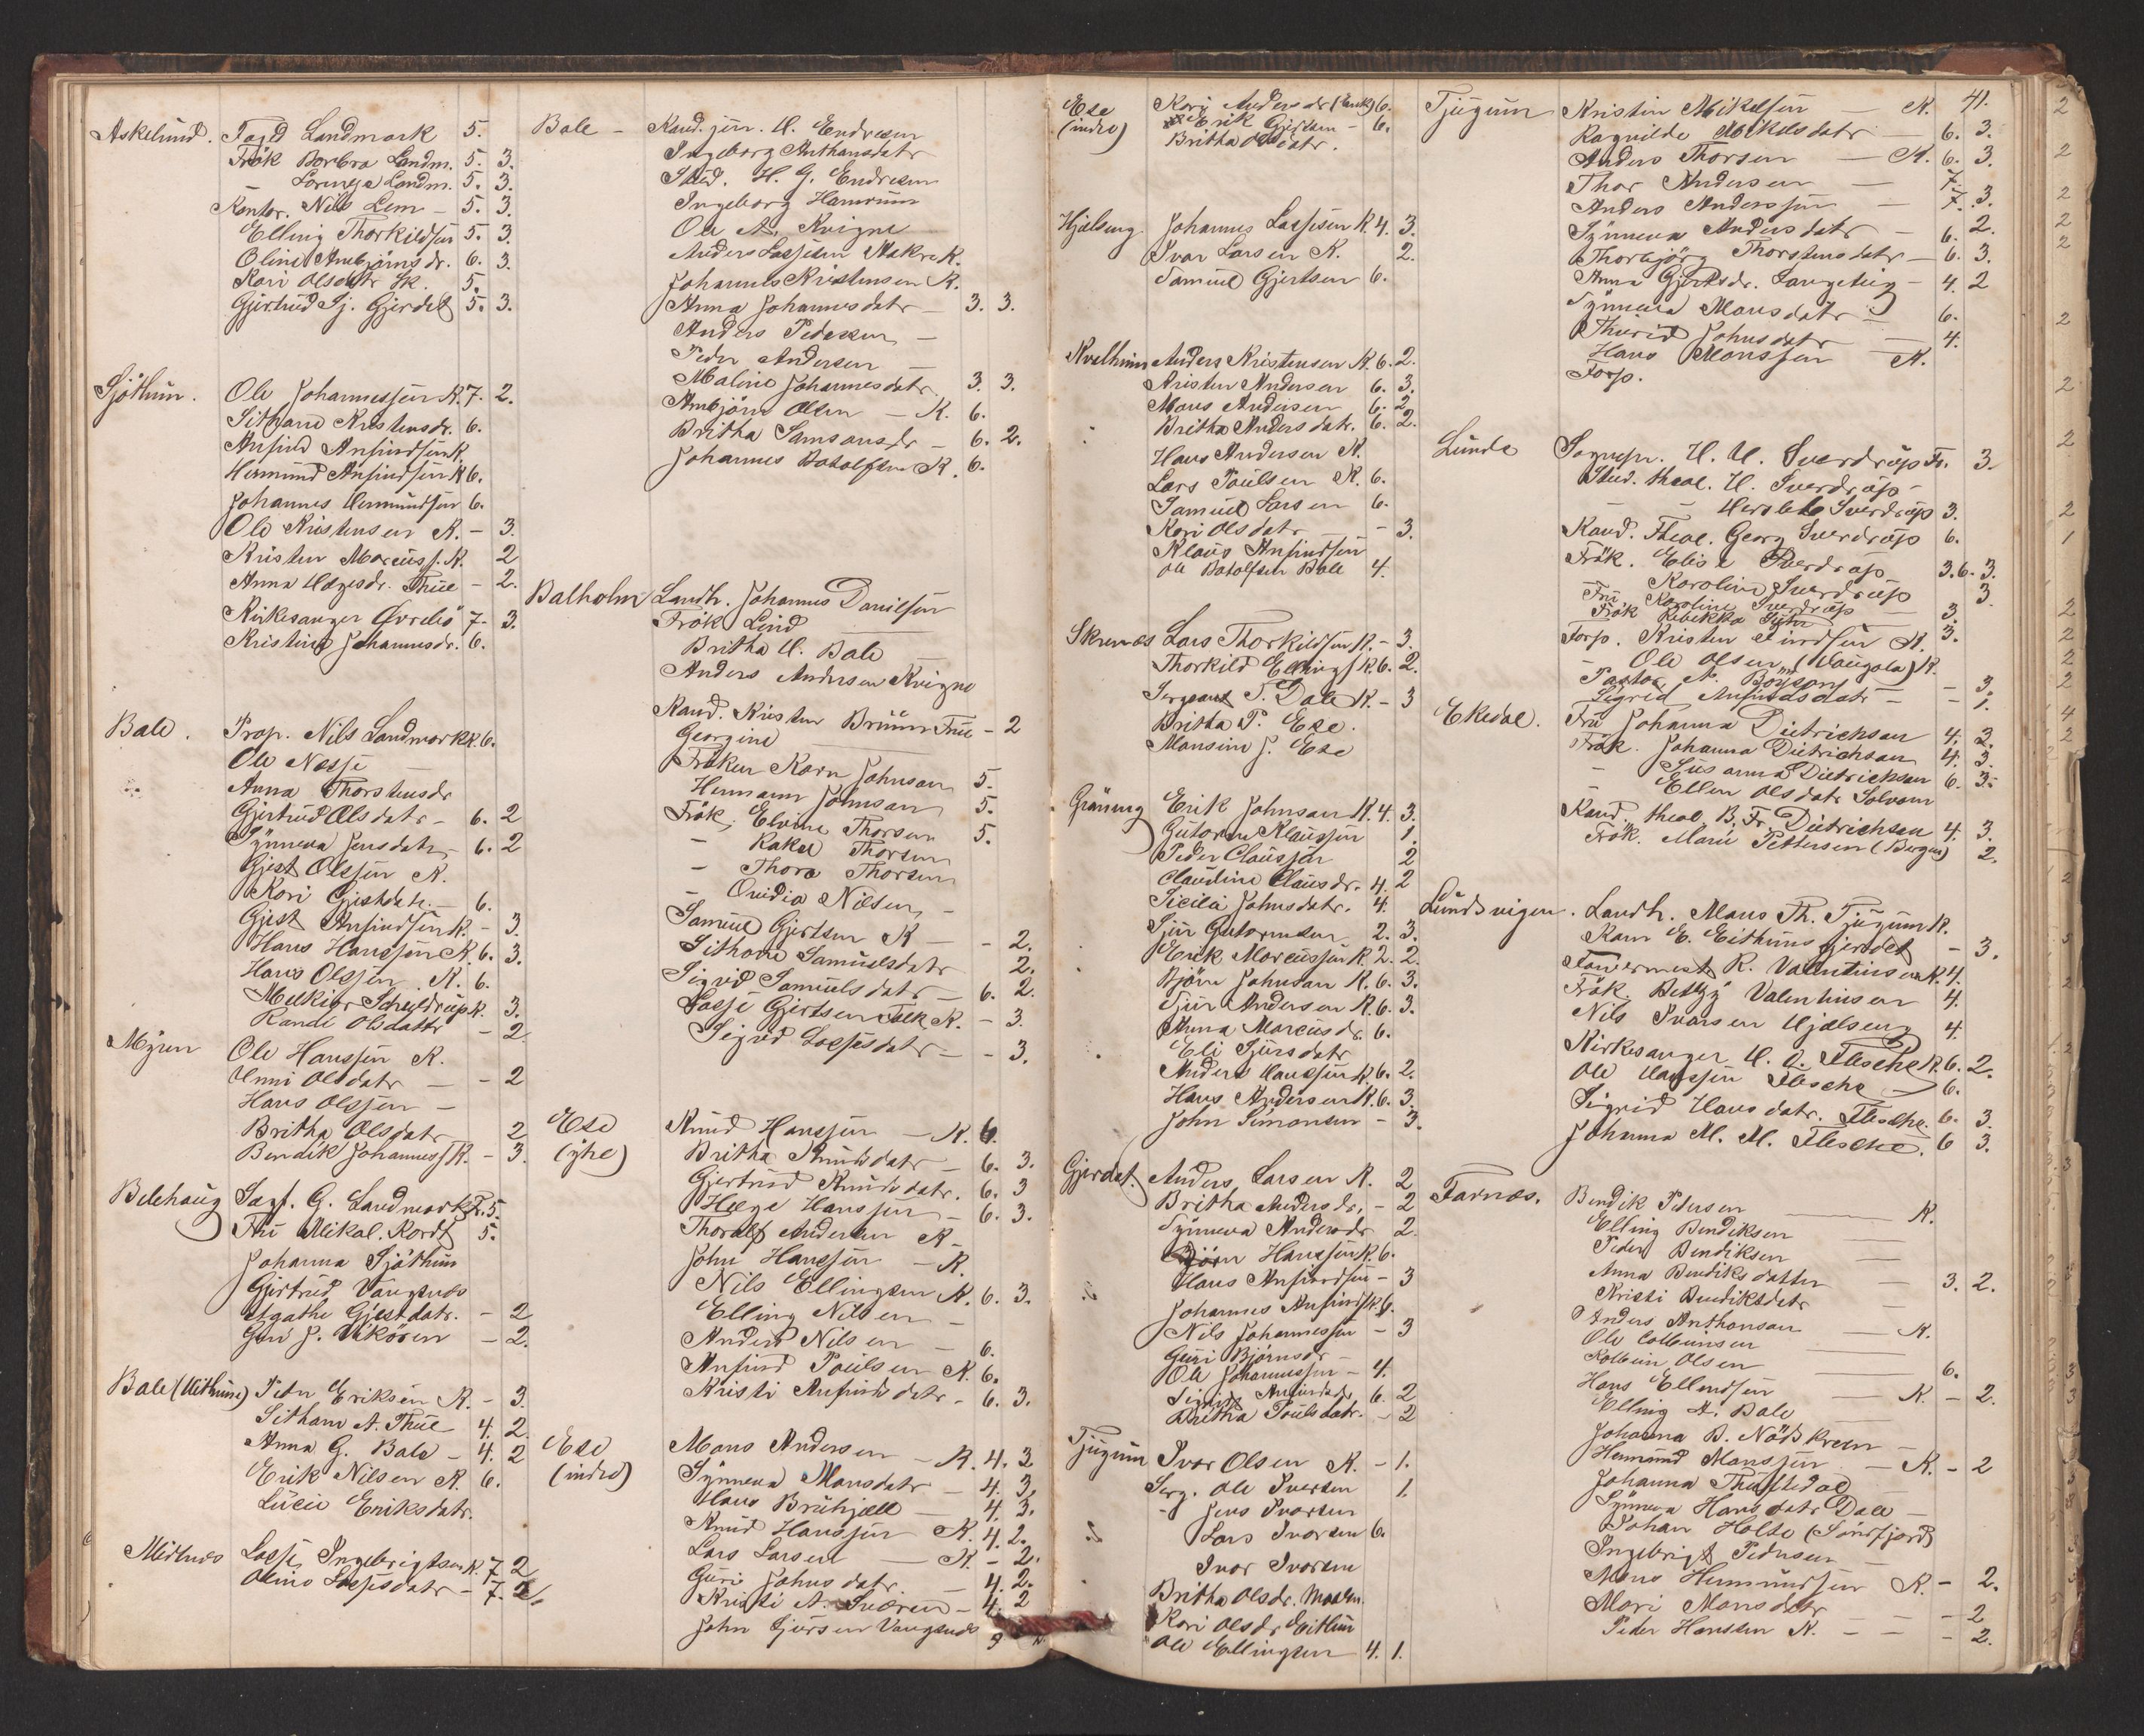 Askelund. Fogd Landmark 5.
Frök Barbra Landm. 5. 3.
— Landm. 5. 3.
Kontor. Nils Lem — 5. 3.
Elling Thorkildsen 5. 3.
Oline Arnbjörns dr. 6. 3.
Kari Olsdatr Sk. 5.
Gjertrud Sj. Gjerdet 5. 3.
Sjöthun. Ole Johannessen K. 7. 2.
Sithane Kristensdr. 6.
Anfind Anfindsen K.
Hermund Anfindsen K 6.
Johannes Hermundsen 6.
Ole Kristensen K. — 3.
Kristen Marcuss. K. 2
Anna Hagesdr. Thue — 2.
Kirkesanger Øvrebö 7. 3.
Kristine Johannesdr. 6.
Bale. Prop. Nils Landmark K. 6.
Ole Nesse —
Anna Thorstensdr
Gjertrud Olsdatr — 6. 2
Synneva Jensdatr — 6. 2
Gjest Olssen K.
Kari Gjestdatr. — 6.
Gjest Anfindsen K. — 3.
Hans Hanssen K. 6. 3.
Hans Olssen K. 6.
Melkior Schjeldrup K. 3.
Randi Olsdattr — 2
Myren Ole Hanssen K.
Unni Olsdatr — — 2
Hans Olssen —
Britha Olsdatr 2
Bendik Johanness K. — 3.
Belehaug Sagf. G. Landmark Fr. 5.
Fru Mikal. Kordt 5.
Johanna Sjöthun
Gjertrud Vangsnes
Agathe Gjestdatr. — 2
Guri J. Vikören — 2.
Bale (Uithune) Peder Eriksen K. — 3.
Sithane A. Thue 4. 2.
Anna G. Bale — 4. 2
Erik Nilsen K. 6.
Lucie Eriksdatr.
Midtnes Lasse Ingebrigtsen K. 7. 2
Oline Lassesdatr — 7. 2
Bale — Kand. jur. H. Endresen
Ingeborg Anthonsdatr
Stud. H. G. Endresen
Ingeborg Hamrum
Ole A. Kvigne
Anders Lassesen Makre K.
Johannes Kristensen K.
Anna Johannesdatr — 3. 3.
Anders Pedersen —
Peder Andersen —
Maline Johannesdatr 3. 3.
Arnbjörn Olsen — K. 6.
Britha Samsonsdr — 6. 2.
Johannes Botolfsen K. 6.
Balholm Landh. Johannes Danielsen
Frök Lind —
Britha H. Bale —
Anders Andersen Kvigne
Kand. Kristen Bruun Frue — 2
Georgine —
Fröken Karn Johnson 5.
Hermann Johnson 5.
Frök. Elvine Thorsen 5.
— Rakel Thorsen
— Thora Thorsen
— Ovidia Nilsen —
Samuel Gjertsen K — — 2.
Sithane Samuelsdatr 2.
Sigrid Samuelsdatr — 6. 2.
Lasse Gjertsen K. — 3.
Sigrid Lassesdatr — — 3.
Ese (ytre) Knud Hanssen — K. 6.
Britha Knudsdatr — 6. 3.
Gjertrud Knudsdatr. 6. 3
Helge Hanssen — 6. 3.
Thoralf Andersen K —
John Hanssen — K.
Nils Ellingsen K. 6. 3.
Elling Nilsen —
Anders Nilsen — 6.
Anfind Poulsen K. 6.
Kristi Anfindsdatr — 6. 3.
Ese (indre) Mons Andersen — K. 4. 3.
Synneva Monsdatr — 4. 3.
Hans Bruhjell — 4. 3.
Knud Hanssen K. 4. 2.
Lars Larsen — K — 2.
Guri Johnsdatr. — 4. 2.
Kristi A. Sværen — 4. 2
John Sjursen Vangsnes
Ese (indre) Kari Andersdr (Enke) 6.
Erik Gjertsen — 6.
Britha Olsdatr.
Hjelseng Johannes Lassesen K. 4. 3.
Ivar Larsen K. 2.
Samuel Gjertsen 6.
Kvelhun Anders Kristensen K. 6. 2.
Kristen Andersen 6. 3.
Mons Andersen 6. 2
Britha Andersdatr. 6. 2.
Hans Andersen K.
Lars Poulsen K. 6.
Samuel Larsen 6.
Kari Olsdatr — — 3.
Klaus Anfindsen
Ole Botolfsen Bale 4.
Skrenes Lars Thorkildsen K. — 3.
Thorkild Ellings K. 6. 2.
Sergeant T. Dale K. — 3
Britha P. Ese.
Mansine J. Ese
Gröning Erik Johnson K. 4. 3.
Gutorm Klaussen 1.
Peder Claussen 2
Claudine Clausdr. 4. 2
Sicilia Johnsdatr. 4.
Sjur Gutormsen 2. 3.
Erik Marcussen K. 2. 2.
Björn Johnson K. 6. 3.
Sjur Andersen K. 6. 3.
Anna Marcusdr. 6.
Eli Sjursdatr
Anders Hanssen K. 6. 2.
Hans Andersen K. 6. 3.
John Simonsen — 3.
Gjerdet. Anders Larsen K. 2
Britha Andersdr. — 2
Synneva Andersdr 2.
Björn Hanssen K. 6.
Hans Anfindsen — 3
Johannes Anfinds K. 6.
Nils Johannessen — 3
Guri Björnsdr —
Ole Johannessen — 4.
Sigrid Anfindsdr 6. 2
Britha Poulsdatr. — 2
Tjugum Ivar Olsen K. — 1.
Serg. Ole Iversen 1.
— Jens Ivarsen
Lars Ivarsen 6.
Ivar Ivarsen
Britha Olsdr. Moen
Kari Olsdr Eithun
Ole Ellingsen 4. 1.
41.
Tjugum Kristen Mikelsen — K.
Ragnilde Mikelsdatr — 6. 3.
Anders Thorsen — K. 6. 3.
Thor Andersen — 7.
Anders Anderssen — 7. 3.
Synneva Andersdatr — 6. 2.
Thorbjörg Thorstensdatr — 6. 3.
Anna Gjertsdr. Langeteig — 4. 2
Synneva Monsdatr — 6.
Thurid Johnsdatr — 4.
Hans Monssen — K.
Forp.
Lunde Sognepr. H. U. Sverdrup Fr. 3.
Stud. theol. H. Sverdrup —
— Herslebb Sverdrup 3.
Kand. Theol. Georg Sverdrup 6.
Frök. Elise Sverdrup 3. 6. 3.
Fru Karoline Sverdrup 3
Frök Karoline Sverdrup 3.
Rebekka
Forp. Kristen Findsen K. 3.
— Ole Olsen (Vangala) K.
Pastor N. Böyson — 3.
Sigrid Anfindsdatr — — 1.
Ekedal. Fru Johanna Dietrichson 4. 3.
Frök. Johanna Dietrichson 4. 3.
— Susanna Dietrichson 6. 3.
Ellen Olsdatr Solvorn
Kand. theol. B. Fr. Dietrichson 4. 3.
Frök. Marie Pettersen (Bergen) 2.
Lundsvigen. Landh. Mons Th. Tjugum K.
Karn E. Eithunsgjerdet — 3.
Farvermest R. Valentinsen K. 4.
Frök. Betty Valentinsen 4.
Nils Ivarsen Hjelseng 4.
Kirkesanger H. O. Flesche K. 6. 2.
Ole Hanssen Flesche — 6.
Sigrid Hansdatr. Flesche. 6. 3.
Johanna M. M. Flesche. 6 3.
Farnes. Bendik Pedersen — K.
Elling Bendiksen —
Peder Bendiksen —
Anna Bendiksdatter — 3. 2.
Kristi Bendiksdatr —
Anders Anthonson — K.
Ole Colbeinsen —
Kolbein Olsen — 6.
Hans Ellendsen — K — 2.
Elling A. Bale —
Johanna B. Nödskreen —
Hermund Monssen — K. — 2
Johanna Thuftedal
Synneva Hansdatr Dale —
Johan Holse (Söndfjord)
Ingebrigt Pedersen —
Mons Hermundsen K. — 2.
Mari Monsdatr — — 2
Peder Hanssen K. — — 2.